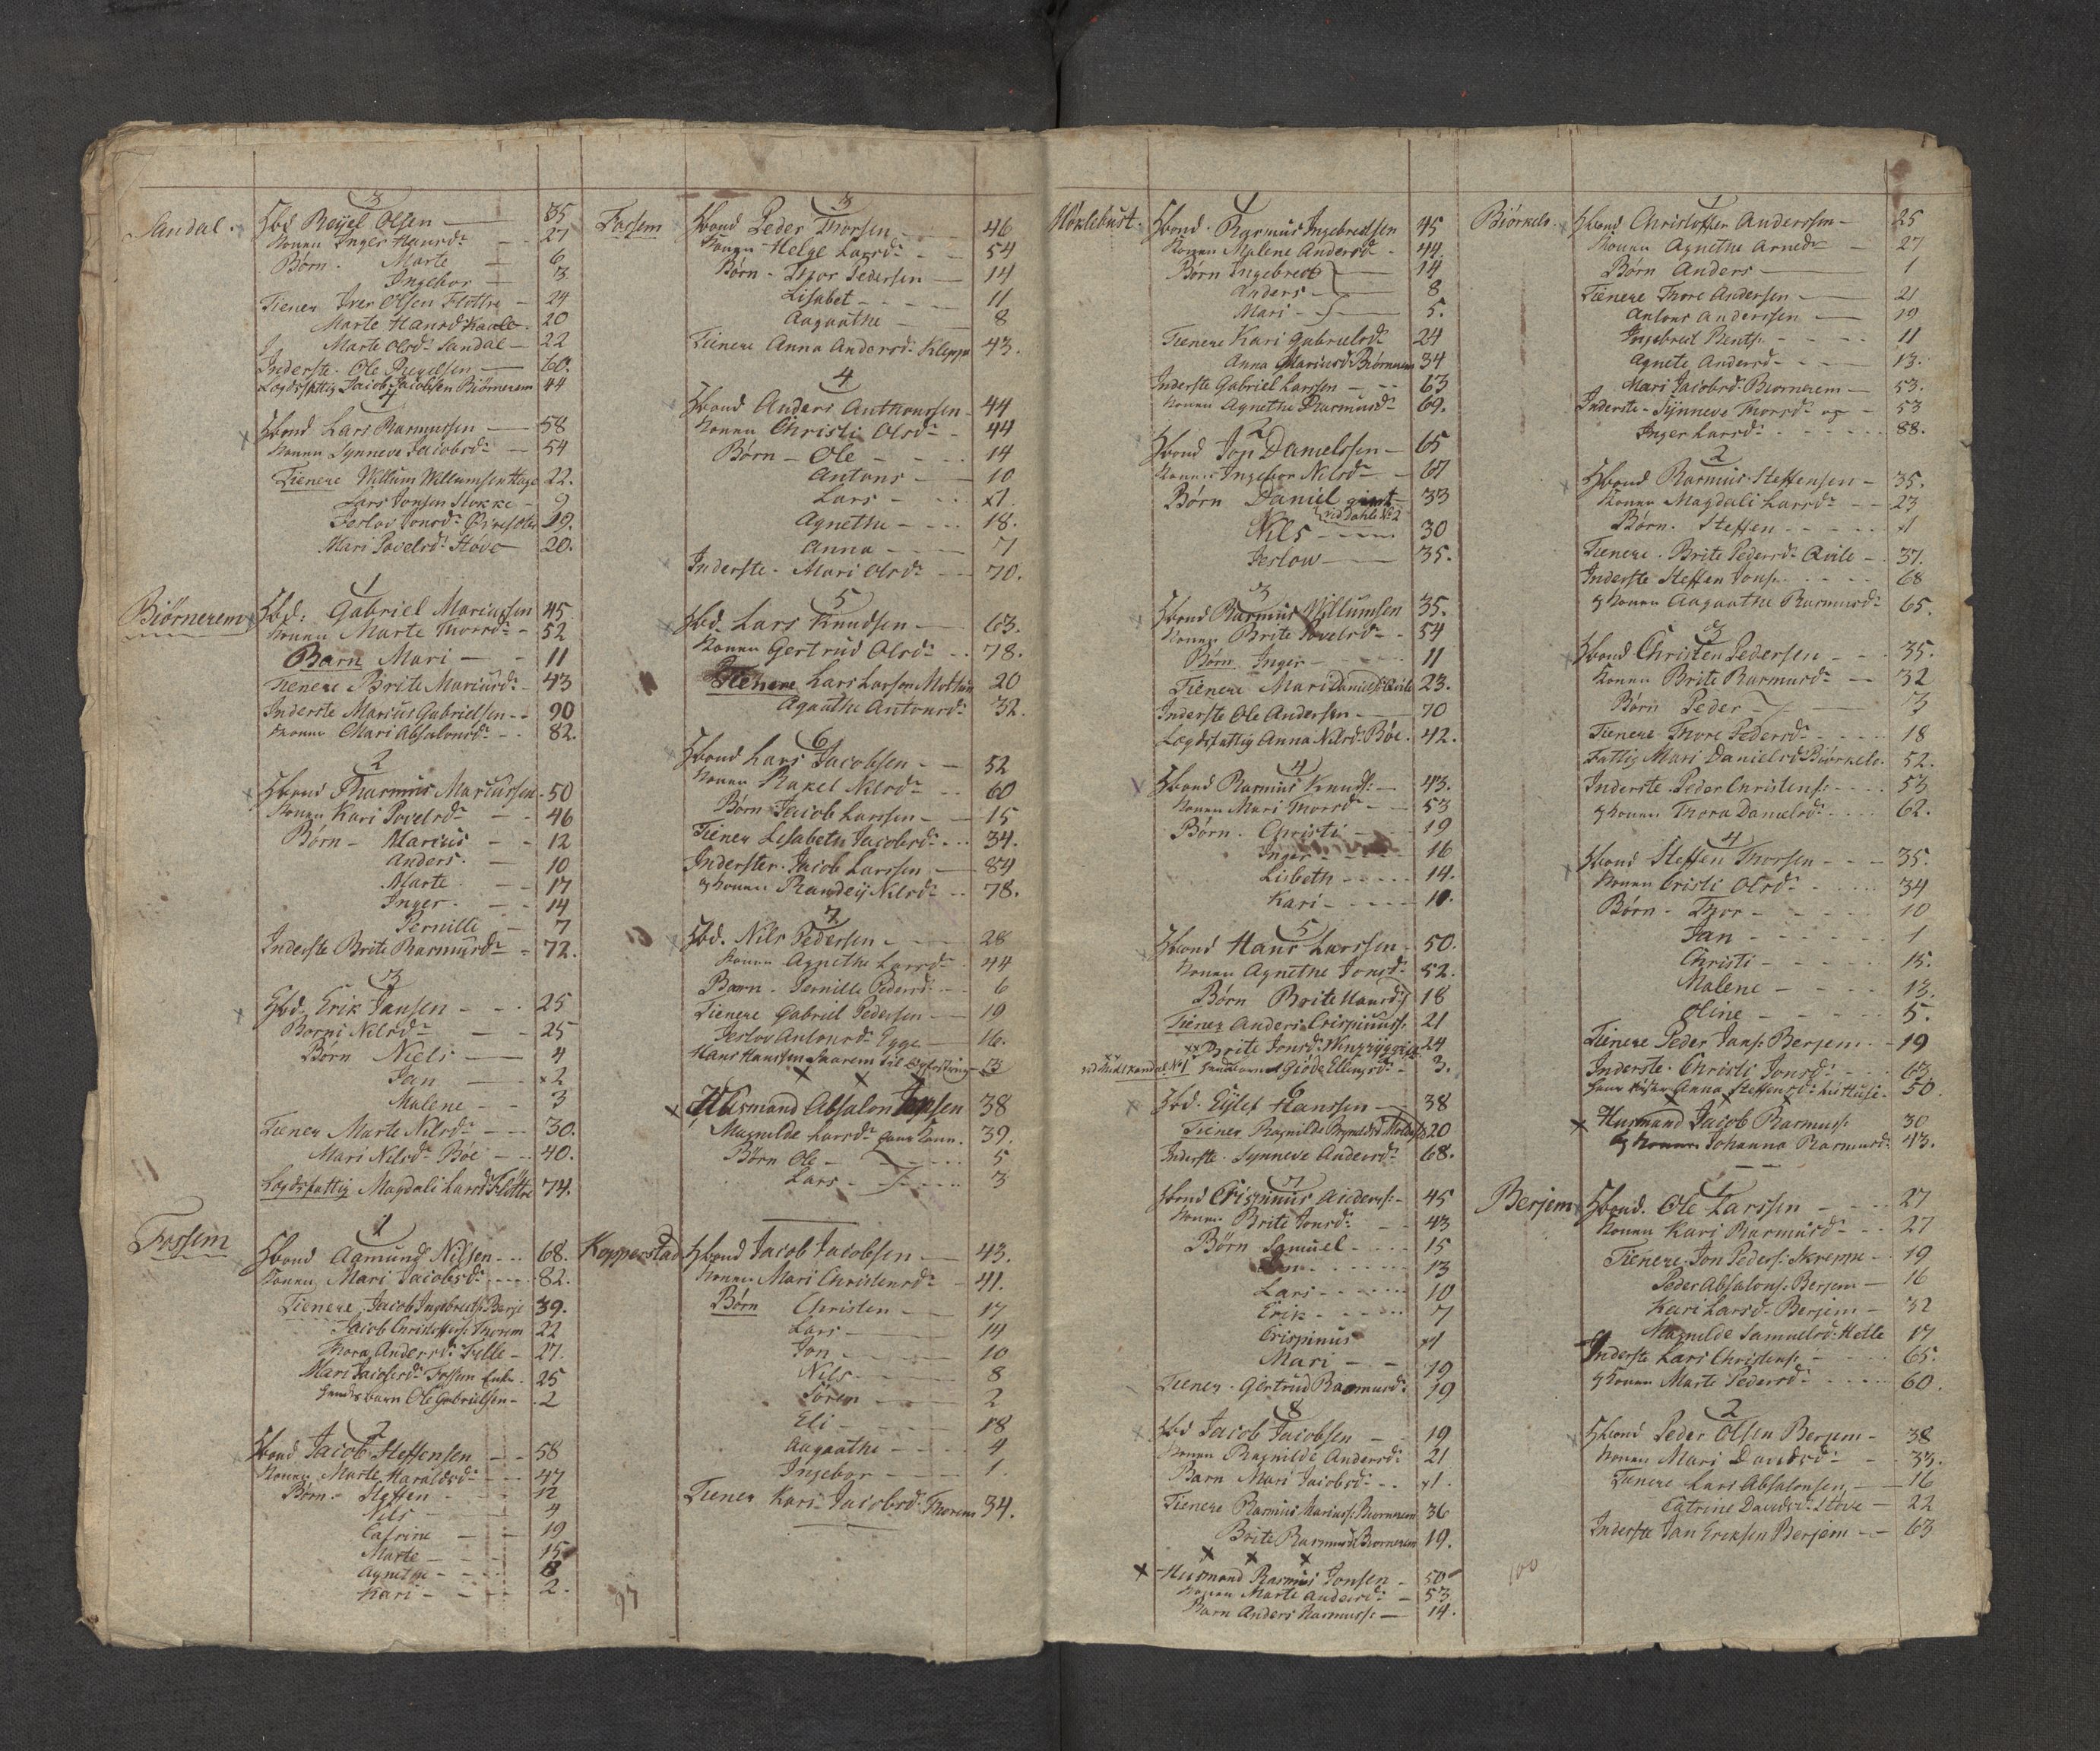 Sandal.
3
Hbd Reyel Olsen 35
Konen Inger Hansdr 27
Børn. Marte 6
Ingebor 3
Tiener Iver Olsen Flottre 24
Marte Hansd 20
Marte Olsdr Sandal 22
Inderste. Ole 60.
Lægdsfattig Jacob Jacobsen Biørnerem 44
4
Hbond Lars Rasmussen 58
Konen Synneve Jacobsdr 54
Tienere Willum Willumsen Hage 22.
Lars Jonsen Slokke 9
Jerlov Jonsdr 19.
Mari Povelsdr Høve 20.
Biørnerem
1
Hbd: Gabriel Mariussen 45
Konen Marte Thorsdr 52
Barn Mari 11
Tienere Brite Mariusdr 43
Inderste Marius Gabrielsen 90
Konen Mari Absalonsdr 82.
2
Hbond Rasmus Mariussen 50
Konen Kari Povelsdr 46
Børn Marius 12
Anders. 10
Marte. 17
Inger. 14
Pernille 7
Inderste Brite Rasmusdr 72.
3
Hbd. Erik Jansen 25
Borni Nilsdr 25
Børn Niels 4
Jan x2
Malene 3
Tiener Marte Nilsdr 30.
Mari Nilsdr Bøe 40.
Lægdsfattig Magdali Larsd Flottre 74.
Fossem
1
Hbond Aamund Nilsen 68.
Konen Mari Jacobsdr 82.
Tienere Jacob Ingebretss Berje 39.
Jacob Christoffers: Thorem 22
Thora Andersdr 27.
Mari Jacobsdr Fossem Enke. 25
barn Ole Gabrielsen 2
2
Hbond Jacob Steffensen 58
Konen Marte Haraldsdr 47
Børn Steffen 12
Nils 4
Catrine 19
Marte 15
Agnethe 8
Kari 2.
Fossem
3
Hbond Peder Thorsen 46
Konen Helge Larsdr 54
Børn Thor Pedersen 14
Lisabet 11
Aagaathe 8
Tienere Anna Andersdr Kleppe 43.
4
Hbond Anders Anthonssen 44
Konen Christi Olsdr 44
Børn Ole 14
Antons 10
Lars x1.
Agnethe 18.
Anna 7
Inderste Mari Olsdr 70.
5
Hbd. Lars Knudsen 63.
Konen Gertrud Olsdr 78.
Tienere Lars Larsen 20
Agaathe Antonsdr 32.
6
Hbond Lars Jacobsen 52
Konen Rakel Nilsdr 60
Børn Jacob Larssen 15
Tiener Lisabeth Jacobsdr 34.
Inderster. Jacob Larssen 84
& Konen Randeÿ Nilsdr 78.
7
Hbd. Nils Pedersen 28
Konen Agnethe Larsdr 44
Barn Pernille Pedersd 6
Tienere Gabriel Pedersen 19
Jerlov Antonsdr Egge 16.
Hans Hansen Saarem til 3
x x x
x Husmand Absalon Jansen 38
Magnilde Larsdr hans Kone. 39.
Børn Ole 5
Lars 3
Kopperstad
Hbond Jacob Jacobsen 43.
Konen Mari Christensdr 41.
Børn Christen 17
Lars 14
Jon 10
Nils 8
Søren 2
Eli 18
Aagaathe 4
Ingebor 1.
Tiener Kari Jacobsd Thorem 34.
97
Møklebust.
1
Hbond. Rasmus Ingebretsen 45
Konen Malene Andersd 44
Børn Ingebret 14
Anders 8
Mari 5.
Tienere Kari Gabrielsdr 24
Anna Mariusd Biørnerem 34
Inderste Gabriel Larssen 63
Konen Agnethe Rasmusdr 69.
2
Hbond Jon Danielssen 65
Konen Ingebor Nilsdr 67
Børn Daniel givt 33
ved Dahle No 2
Nils 30
Jerlow 35.
3
Hbond Rasmus Willumsen 35.
Konen Brite Povelsdr 54
Børn Inger 11
Tienere Mari Danielsd 23.
Inderste Ole Andersen 70
Lægdsfattig Anna Nilsd: Bøe. 42.
4
Hbond Rasmus Knuds: 43.
Konen Mari Thorsdr 53
Børn. Christi 19
Inger 16
Lisbeth 14.
Kari 10.
5
Hbond Hans Larssen 50.
Konen Agnethe Jonsdr 52.
Børn Brite Hansd 18
Tiener Anders Crispinuss: 21
xx Brite Jonsd 24
Giøde Ellingsdr 3.
6
Hbd. Eylef Hanssen 38
Tiener Ragnilde 20
Inderste. Synneve Andersdr 68.
7
Hbond Crispinus Anders: 45
Konen Brite Jonsdr 43
Børn Samuel 15
13
Lars 10
Erik 7
Crispinus x1
Mari 19
Tiener Gertrud Rasmusdr 19
8
Hbd Jacob Jacobsen 19
Konen Ragnilde Andersdr 21
Barn Mari Jacobsdr x1.
Tienere Rasmus Mariuss: Biørnerem 36
Brite Rasmusd Biørnerem 19.
x x x
x Husmand Rasmus Jonsen 50
Konen Marte Andersdr 53
Barn Anders Rasmuss: 14.
Biørkelo.
1
Hbond Christoffer Anderssen 25
Konen Agnethe Arnedr 27
Børn Anders 1
Tienere Thore Andersen 21
Antons Anderssen 19
Ingebret Bents: 11
Agnete Andersd 13.
Mari Jacobsd. Biørnerem 53.
Inderste Synneve Thorsdr og 53
Inger Larsdr 88.
2
Hbond Rasmus Steffensen 35.
Konen Magdali Larsdr 23
Børn. Steffen x1
Tienere. Brite Pedersdr Qvile 37.
Inderste Steffen Jons: 68
& Konen Aagaathe Rasmusdr 65.
3
Hbond Christen Pedersen 35.
Konen Brite Rasmusdr 32
Børn Peder 3
Tienere Thore Pedersdr 18
Fattig Mari Danielsd Biørkelo. 52.
Inderste Peder Christens: 53
& Konen Thora Danielsdr 62.
4
Hbond Steffen Thorsen 35.
Konen Cristi Olsdr 34
Børn Thor 10
Jan 1
Christi 15.
Malene 13.
Oline 5.
Tienere Peder Jans: Berjem 19
Inderste. Christi Jonsdr 63.
Anna Steffensdr 50.
x Husmand Jacob Rasmuss: 30
& Konen Johanna Rasmusdr 43.
Berjem
1
Hbond. Ole Larssen 27
Konen Kari Rasmusdr 27
Tienere Jon Peders: Skreppe 19
Peder Absalons: Berjem 16
Kari Larsd. Berjem 32
Magnilde Samuelsd: Helle 17
Inderste Lars Christens: 65.
& Konen Marte Pedersdr 60.
2
Hbond Peder Olsen Berjem 38
Konen Mari Davidsdr 33.
Tienere Lars Absalonsen 16
Catrine Davidsd. Støve 22
Inderste Jan Eriksen Berjem 63
100